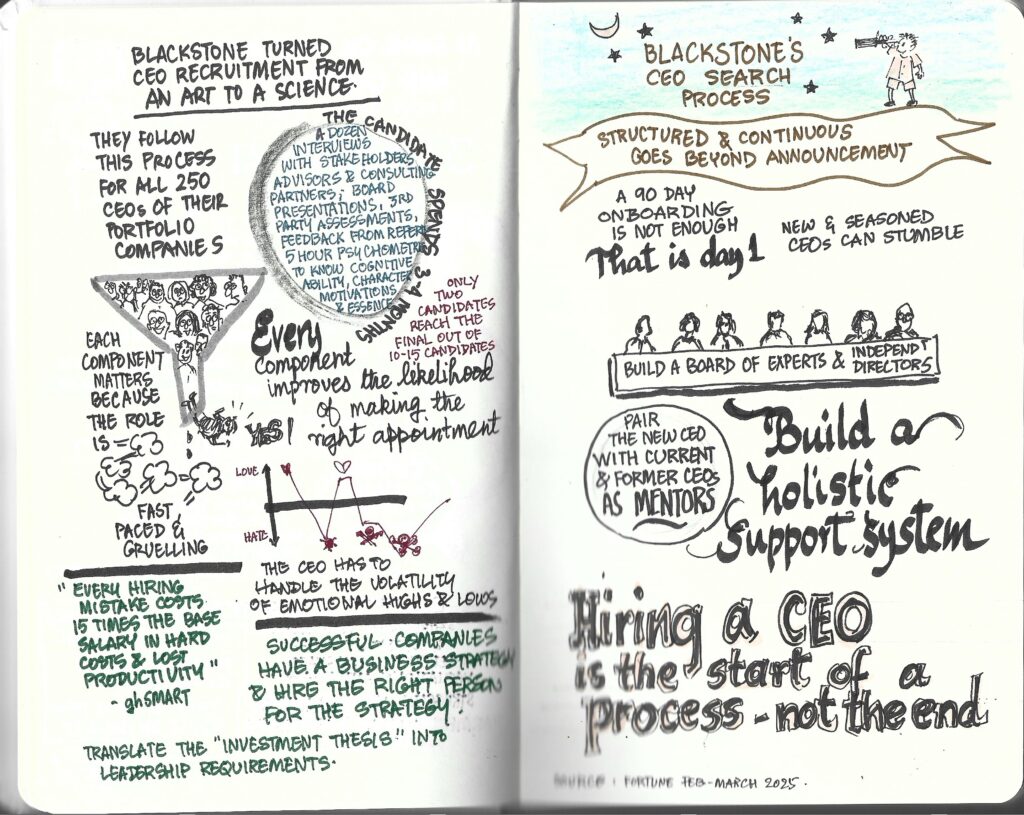 BLACKSTONE TURNED
CEO RECRUITMENT FROM
AN ART TO A SCIENCE.
THEY FOLLOW
THIS PROCESS
FOR ALL 250
CEOs OF THEIR
PORTFOLIO
COMPANIES
THE CANDIDATE SPENDS 3-4 MONTHS
A DOZEN
INTERVIEWS
WITH STAKEHOLDERS
ADVISORS & CONSULTING
PARTNERS; BOARD
PRESENTATIONS, 3RD
PARTY ASSESSMENTS,
FEEDBACK FROM
5 HOUR PSYCHOMETRIC
TO KNOW COGNITIVE
ABILITY, CHARACTER
MOTIVATIONS
& ESSENCE
ONLY
TWO
CANDIDATES
REACH THE
FINAL OUT OF
10-15 CANDIDATES
EACH
COMPONENT
MATTERS
BECAUSE
THE ROLE
IS
FAST
PACED &
GRUELLING
Every
component
improves the likelihood
of making the
right appointment
YES!
LOVE
HATE
THE CEO HAS TO
HANDLE THE VOLATILITY
OF EMOTIONAL HIGHS & LOWS
"EVERY HIRING
MISTAKE COSTS
15 TIMES THE BASE
SALARY IN HARD
COSTS & LOST
PRODUCTIVITY"
- ghSMART
SUCCESSFUL COMPANIES
HAVE A BUSINESS STRATEGY
& HIRE THE RIGHT PERSON
FOR THE STRATEGY.
TRANSLATE THE "INVESTMENT THESIS" INTO
LEADERSHIP REQUIREMENTS.
BLACKSTONE'S
CEO SEARCH
PROCESS
STRUCTURED & CONTINUOUS
GOES BEYOND ANNOUNCEMENT
A 90 DAY
ONBOARDING
IS NOT ENOUGH
That is day 1
NEW & SEASONED
CEOs CAN STUMBLE
BUILD A BOARD OF EXPERTS & INDEPENDT
DIRECTORS
PAIR
THE NEW CEO
WITH CURRENT
& FORMER CEOs
AS MENTORS
Build a
holistic
support system
Hiring a CEO
is the start of a
process - not the end
SOURCE: FORTUNE FEB-MARCH 2025.